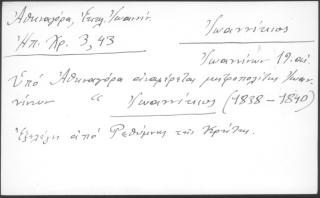 Ἀθηναγόρα, Ἐκκλ. Ἰωανίν.
Ἠπ. Χρ. 3, 43
Ἰωαννίκιος
Ἰωαννίνων 19. αἰ.
Ὑπό Ἀθηναγόρα ἀναφέρεται μητροπολίτης Ἰωαν-
νίνων " Ἰωαννίκιος (1838 - 1840)
Ἐξελέγη ἀπό Ρεθύμνης τῆς Κρήτης.